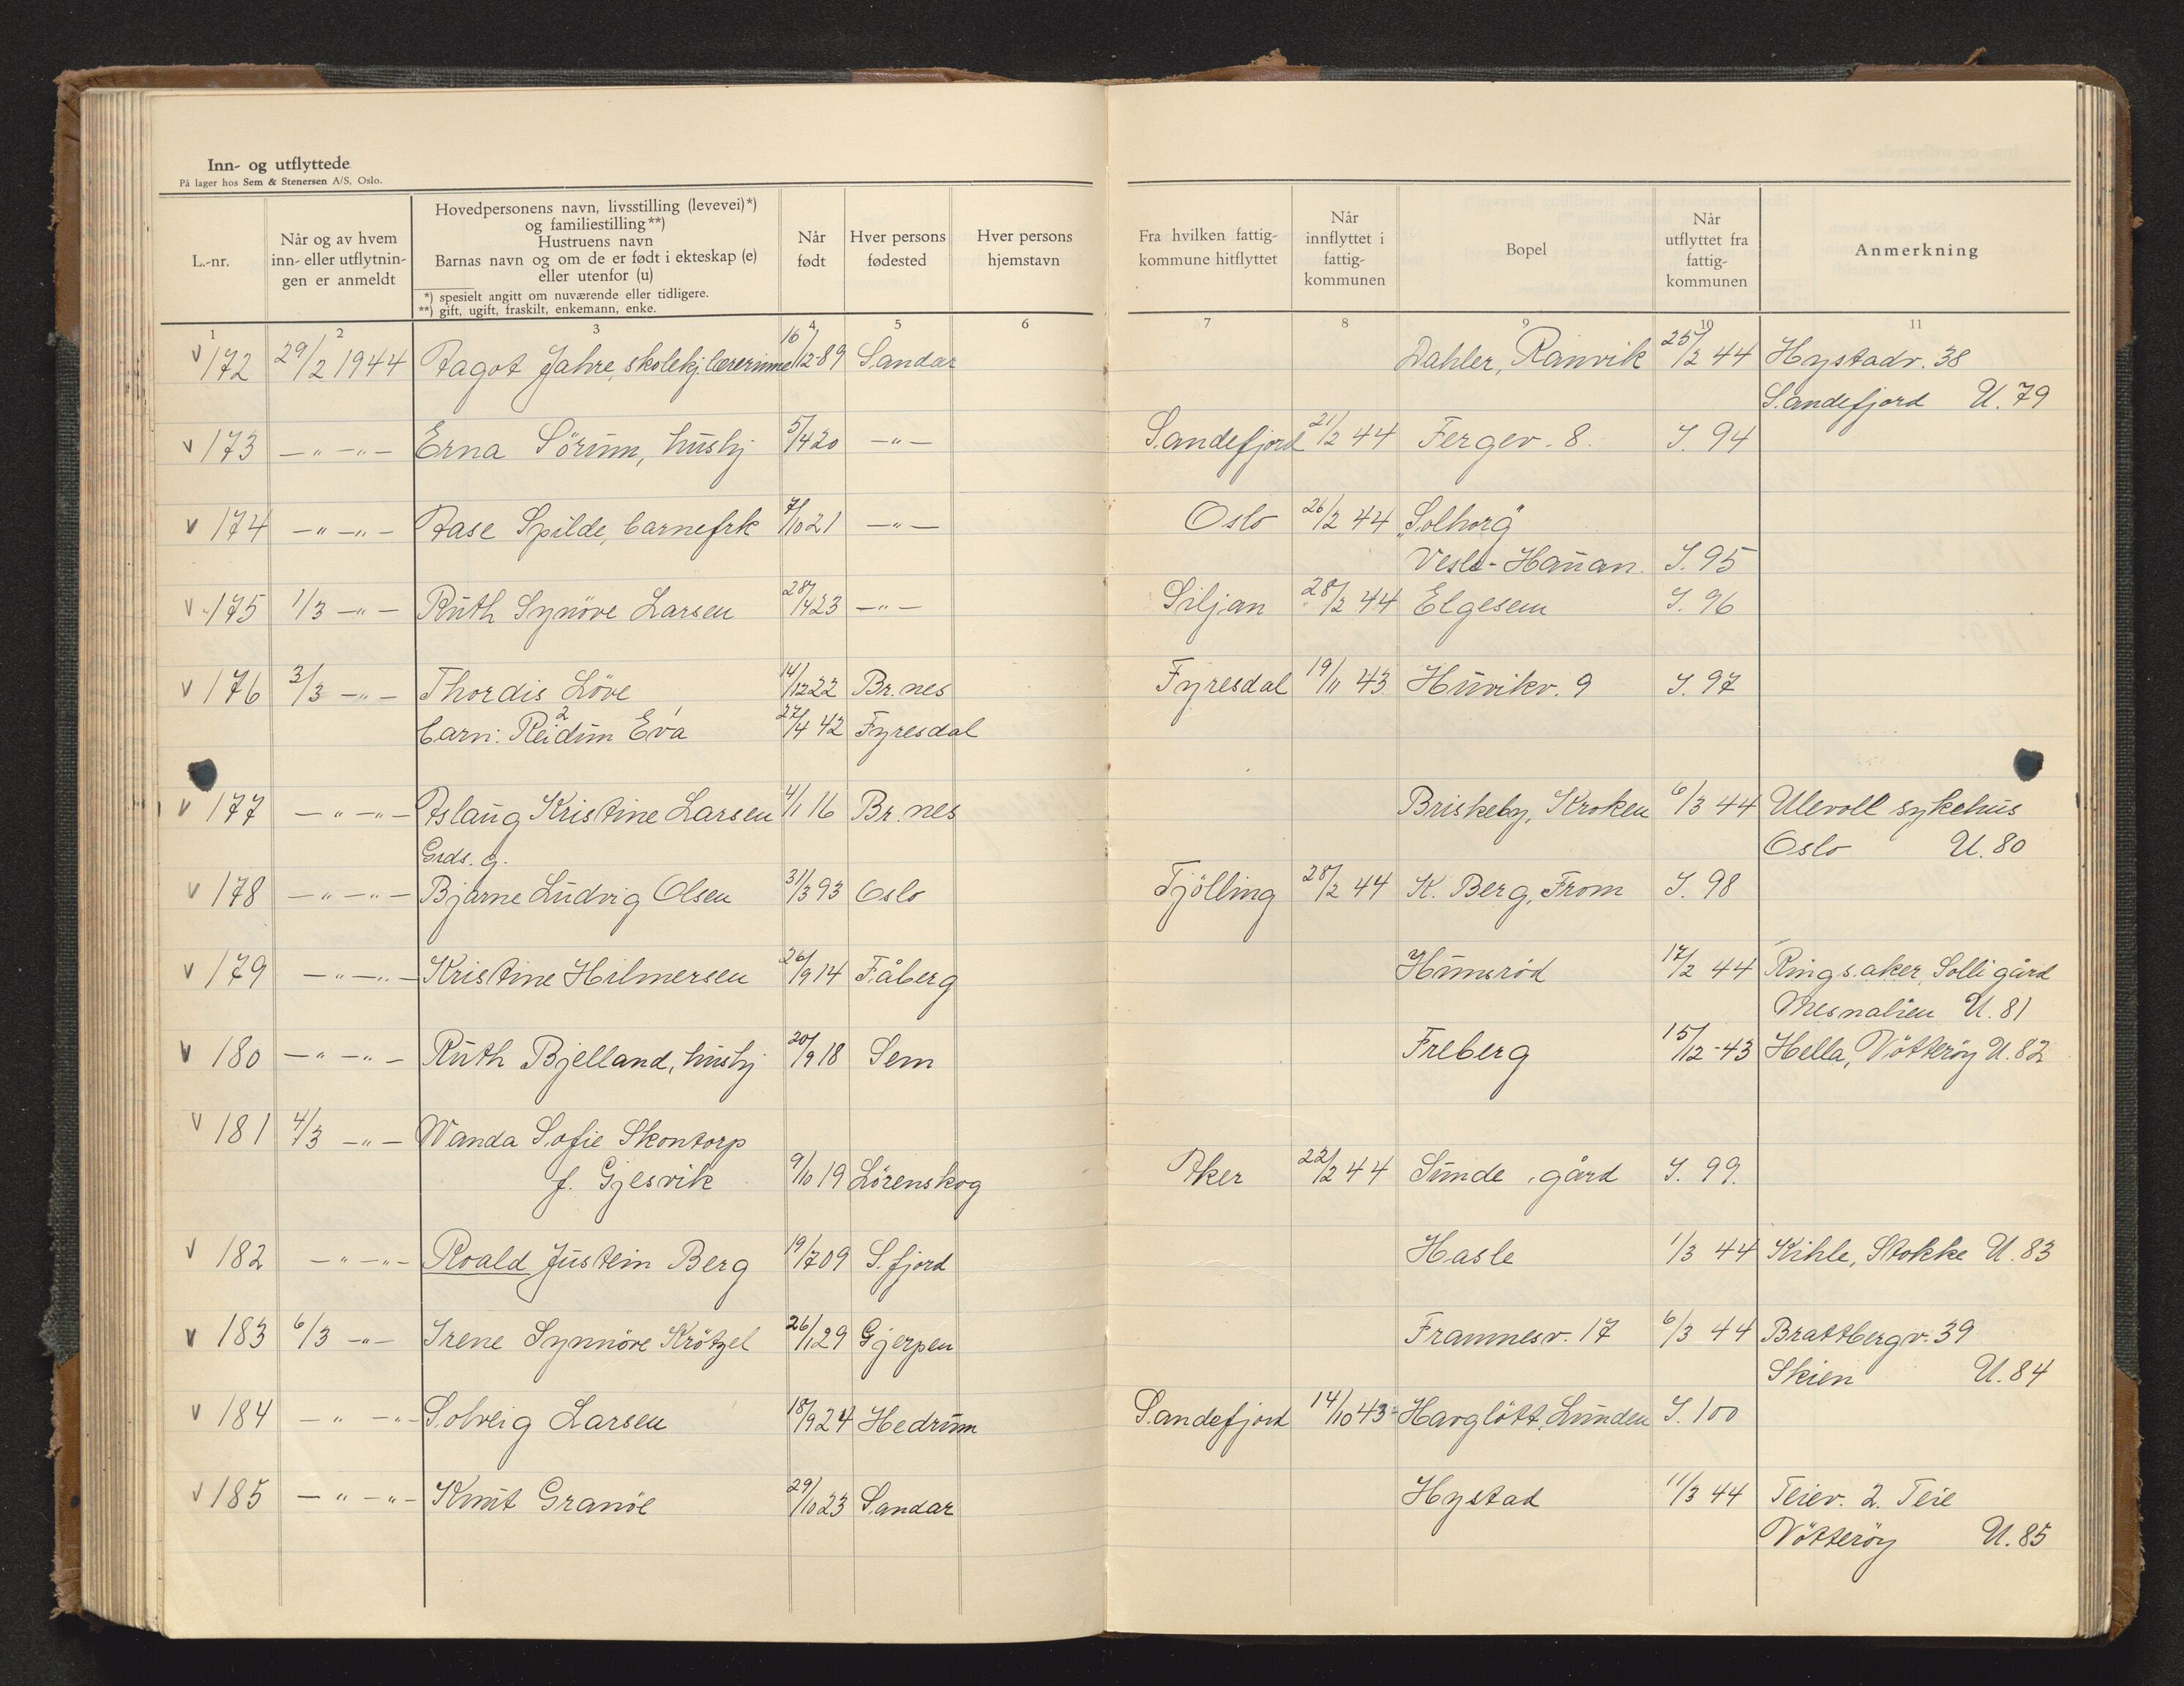 Inn- og utflyttede
På lager hos Sem & Stenersen A/S, Oslo.
L.-nr.
Når og av hvem inn- eller utflytnin- gen er anmeldt
Hovedpersonens navn, livsstilling (levevei)*)
og familiestilling**)
Hustruens navn
Barnas navn og om de er født i ekteskap (e)
eller utenfor (u)
*) spesielt angitt om nuværende eller tidligere.
**) gift, ugift, fraskilt, enkemann, enke.
Når født
Hver persons fødested
Hver persons hjemstavn
Fra hvilken fattig- kommune hitflyttet
Når innflyttet i fattig- kommunen
Bopel
Når utflyttet fra fattig- kommunen
Anmerkning
1 2 3 4 5 6 7 8 9 10 11
v 172 29/2 1944 Aagot Jahre, skolekj.lærerinne 16/12-89 Sandar Dahler, Ranvik 25/2 44 Hystadv. 38
Sandefjord U. 79
v 173 -"- -"- Erna Sörum, hushj 5/4 20 -"- Sandefjord 21/2 44 Fergev. 8. I. 94
v 174 -"- -"- Aase Spilde, barnefrk 7/10 21 -"- Oslo 26/2 44 "Solborg"
Vesle-Haúan. I. 95
v 175 1/3 -"- Ruth Synöve Larsen 28/4 23 -"- Siljan 28/2 44 Elgesem I. 96
v 176 3/3 -"- Thordis Löve 14/12 22 Br.nes Fyresdal 19/11 43 Húvikv. 9 I. 97
barn: Reidun 2 Eva 1 27/4 42 Fyresdal
v 177 -"- -"- Aslaug Kristine Larsen 4/1 16 Br.nes Briskeby, Kroken 6/3 44 Ulevoll sykehus
Grds. g. Oslo U. 80
v 178 -"- -"- Bjarne Ludvig Olsen 31/3 93 Oslo Tjölling 28/2 44 K. Berg, From I. 98
v 179 -"- -"- Kristine Hilmersen 26/9 14 Fåberg Húmsröd 17/2 44 Ringsaker, Solli gård
Mesnalien U. 81
v 180 -"- -"- Ruth Bjelland, hushj 20/9 18 Sem Freberg 15/12-43 Hella, Nötteröy U. 82
v 181 4/3 -"- Wanda Sofie Skontorp
f. Gjesvik 9/10 19 Lörenskog Aker 22/2 44 Sunde gård I. 99.
v 182 -"- -"- Roald Justein Berg 19/7 09 S.fjord Hasle 1/3 44 Kihle, Stokke U. 83
v 183 6/3 -"- Irene Synnöve Krötzel 26/1 29 Gjerpen Framnesv. 17 6/3 44 Brattbergv. 39
Skien U. 84
v 184 -"- -"- Solveig Larsen 18/9 24 Hedrum Sandefjord 14/10 43 Havglött, Lunden I. 100
v 185 -"- -"- Knut Granöe 29/10 23 Sandar Hystad 11/3 44 Teiev. 2. Teie
Nötteröy U. 85